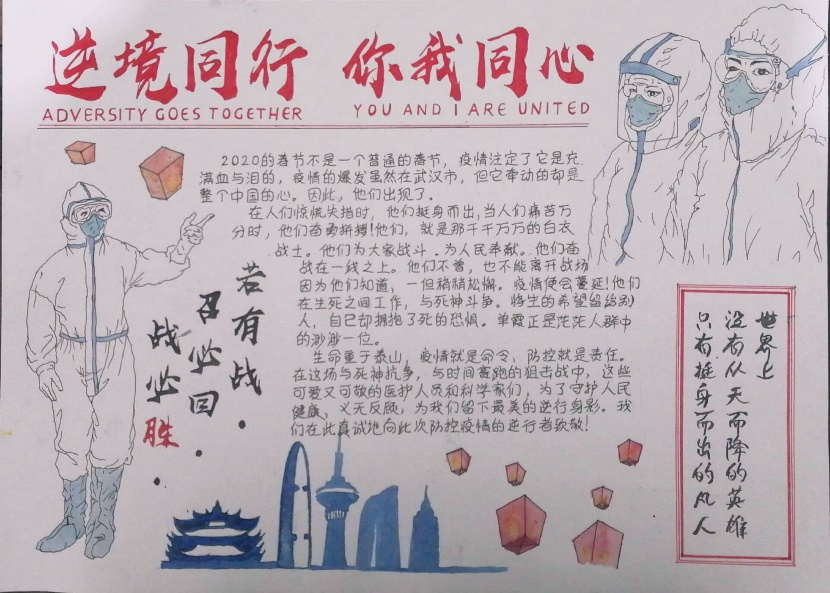 逆境同行 你我同心
ADVERSITY GOES TOGETHER YOU AND I ARE UNITED
2020的春节不是一个普通的春节，疫情注定了它是充
满血与泪的，疫情的爆发虽然在武汉市，但它牵动的却是
整个中国的心。因此，他们出现了．
在人们惊慌失措时，他们挺身而出,当人们痛苦万
分时，他们奋勇拼搏!他们，就是那千千万万的白衣
战士。他们为大家战斗．为人民奉献．他们奋
战在一线之上。他们不曾，也不能离开战场
因为他们知道，一但稍稍松懈．疫情便会蔓延!他们
在生死之间工作，与死神斗争。将生的希望留给别
人，自己却拥抱了死的恐惧。单霞正是茫茫人群中
的渺渺一位。
生命重于泰山，疫情就是命令、防控就是责任。
在这场与死神抗争，与时间赛跑的狙击战中，这些
可爱又可敬的医护人员和科学家们，为了守护人民
健康、义无反顾，为我们留下最美的逆行身影。我
们在此真诚地向此次防控疫情的逆行者致敬!
若有战．
召必回．
战必胜．
世界上
没有从天而降的英雄
只有挺身而出的凡人